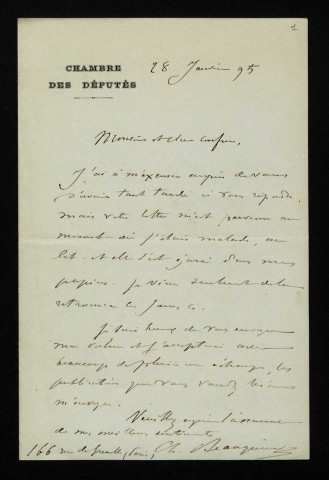 1
28 Janvier 95
CHAMBRE
DES DÉPUTÉS
Monsieur et cher confrère,
J'ai à m'excuser auprès de vous
d'avoir tant tardé à vous répondre
mais votre lettre m'est parvenue au
moment où j'étais malade, au
lit. et elle s'est égarée dans mes
papiers. Je viens seulement de la
retrouver ces jours ci.
Je suis heureux de vous envoyer
mon volume et j'accepterai avec
beaucoup de plaisir en échange, les
publications que vous voudrez bien
m'envoyer.
Veuillez agréer l'assurance
de mes meilleurs sentiments
166 rue de Grenelle, (Paris) Ch. Beauquier